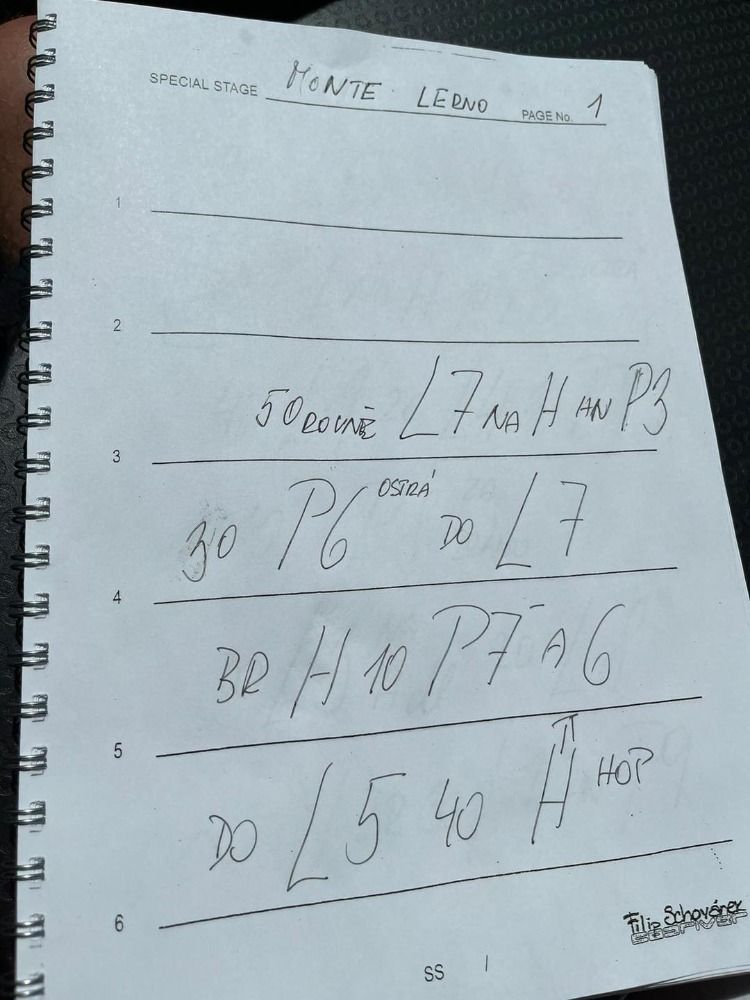 SPECIAL STAGE MONTE LERNO PAGE No. 1
1
2
50 ROVNĚ L7 NA H AN P3
3
30 P6 OSTRÁ DO L7
4
BR H 10 P7- A 6
5
DO L 5 40 H HOP
6
Filip Schovánek
SS 1